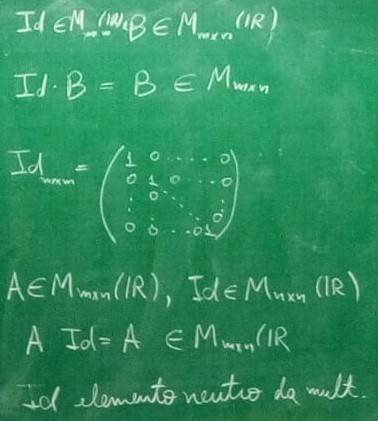 Id ∈ M_{m×m}(IR), B ∈ M_{m×n}(IR)
Id · B = B ∈ M_{m×n}
Id_{m×m} = ( 1 0 ..... 0
0 1 0 ... 0
⋮ 0 ⋱ ⋮
0 0 ... 0 1 )
A ∈ M_{m×n}(IR), Id ∈ M_{n×n}(IR)
A Id = A ∈ M_{m×n}(IR
Id elemento neutro da mult.